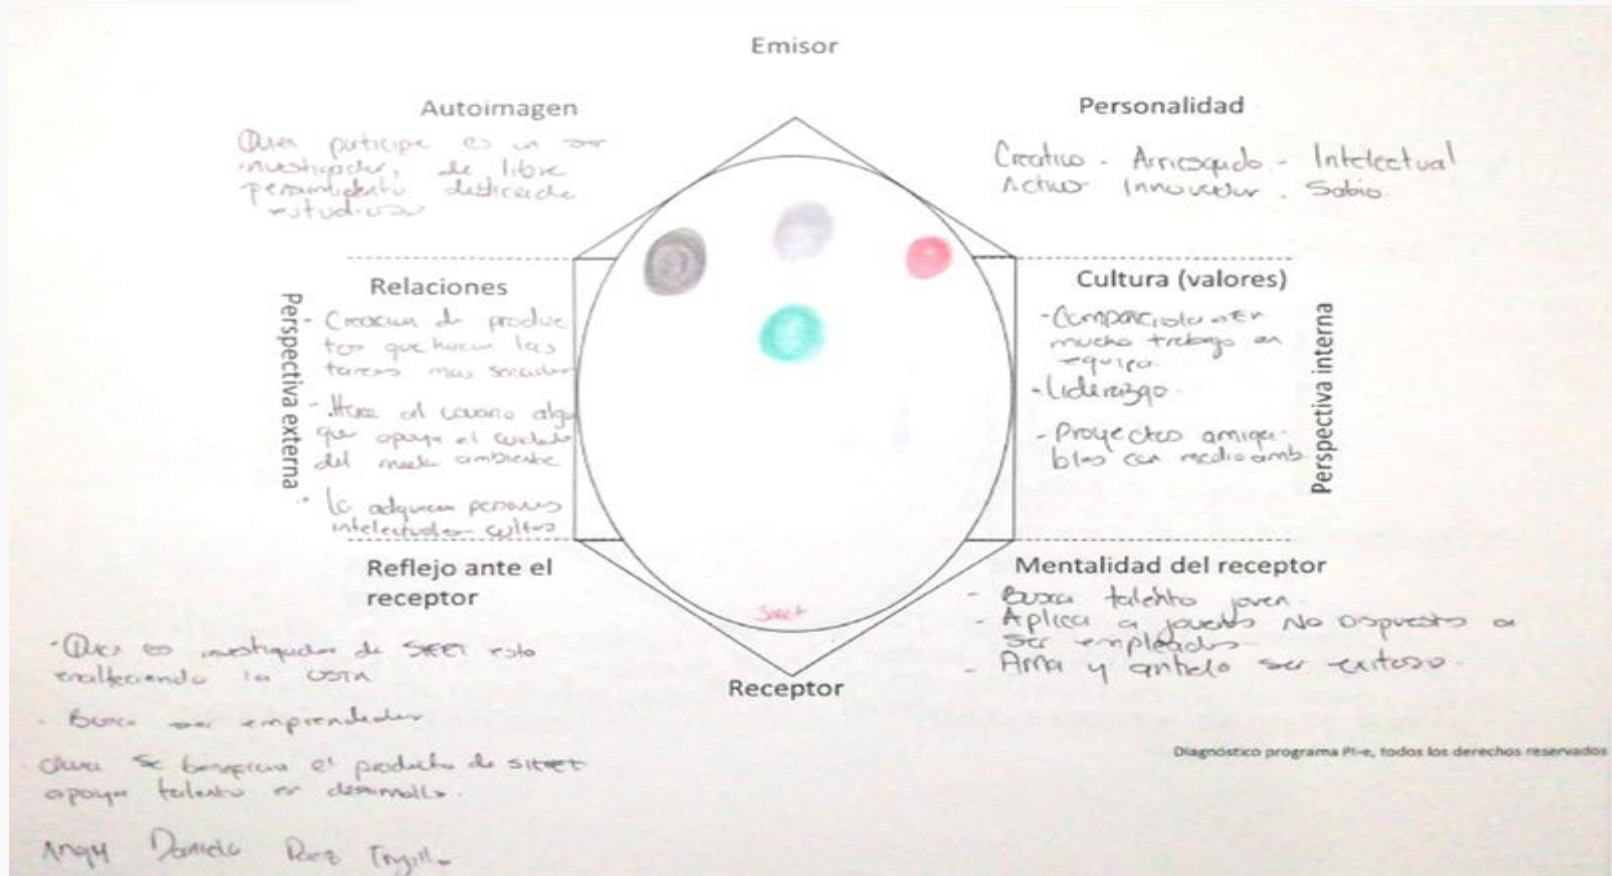 Emisor
Autoimagen
participe es un ser
investigador, de libre
estudioso
Personalidad
Creativo - Arriesgado - Intelectual
Activo Innovador. Sabio
Relaciones
- Creacion de produc
tos que hacen las
tareas mas
- Hace al usuario algo
que apoya el cuidado
del medio ambiente
- lo adquieren personas
intelectuales cultas
Perspectiva externa
Cultura (valores)
mucho trabajo en
equipo.
- Liderazgo.
- Proyectos amiga-
bles con medio amb
Perspectiva interna
Reflejo ante el
receptor
- es investigador de SIEET esta
enalteciendo la USTA
- Busca ser emprendedor
se beneficia el producto de
apoya talento en desarrollo.
Angy Daniela Paez Trujillo
Mentalidad del receptor
- Busca talento joven.
- Aplica a jovenes No dispuestos a
ser empleados
- Ama y anhela ser exitoso.
Receptor
Diagnóstico programa PI-e, todos los derechos reservados